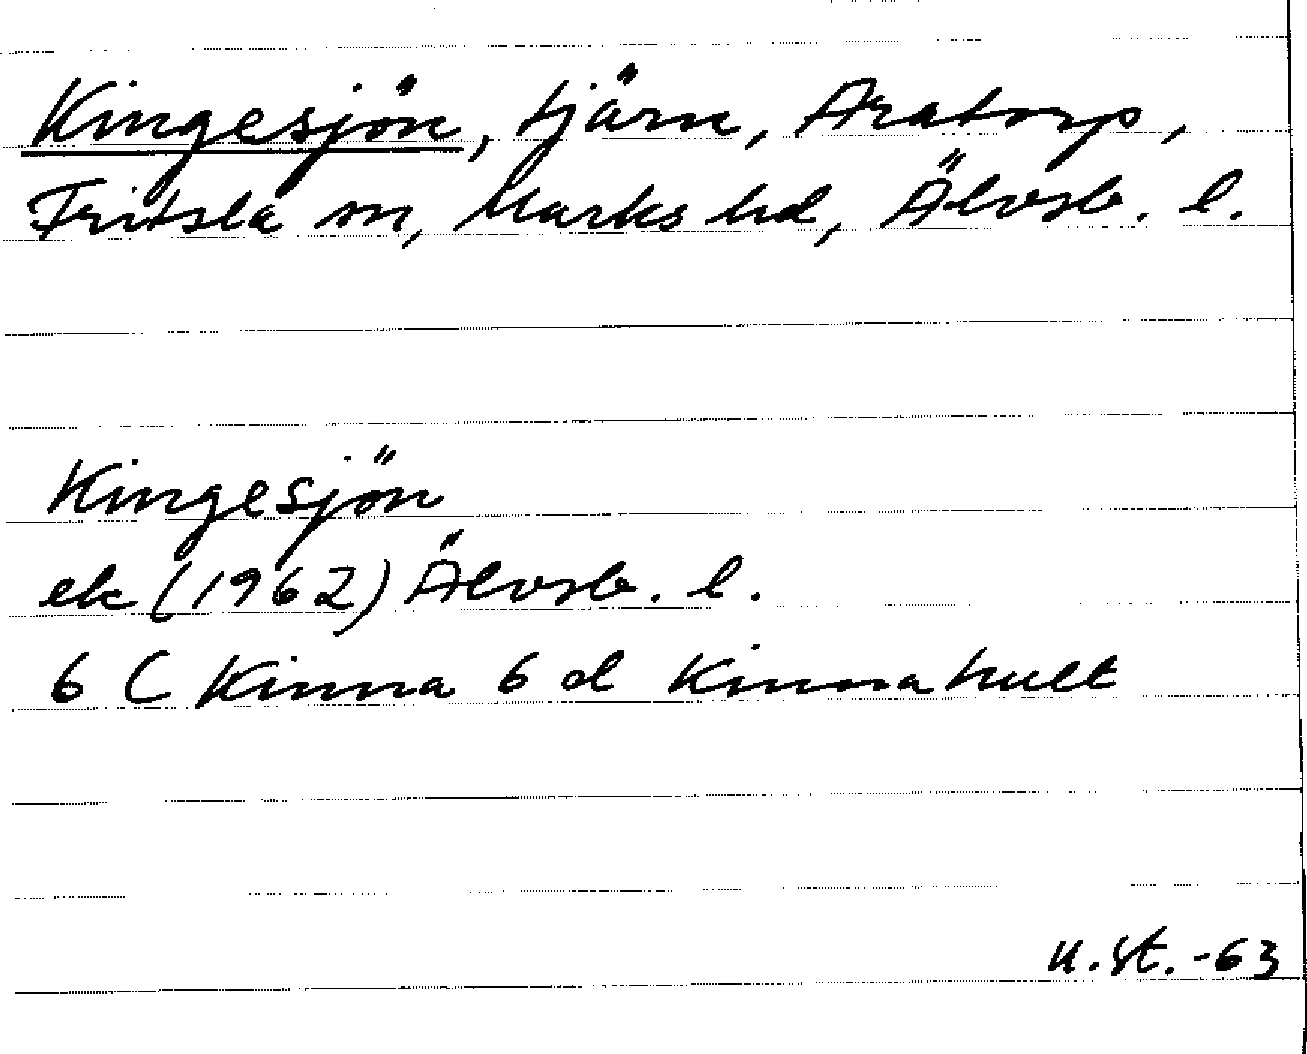 Kingesjön, tjärn, Aratorp,
Fritsla sn, Marks hd, Älvsb. l.
Kingesjön
ek (1962) Älvsb. l.
6 C Kinna 6 d Kinnahult
u.st. -63